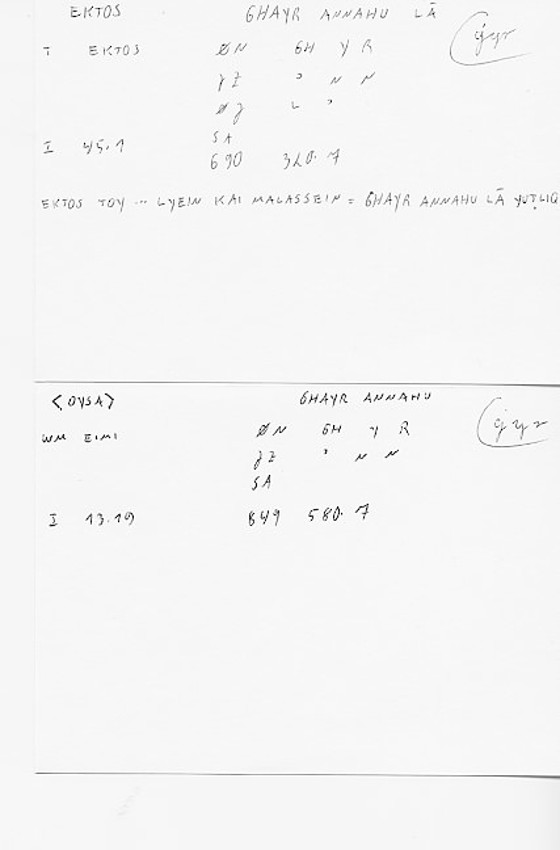 EKTOS GHAYR ANNAHU LĀ
T EKTOS ØN GH Y R ġyr
ȷZ ʾ N N
Øȷ L ʾ
SA
I 45.1
690 320.7
EKTOS TOY ... LYEIN KAI MALASSEIN = GHAYR ANNAHU LĀ YUṬLIQ
<OYSA> GHAYR ANNAHU
ØN GH Y R ġyr
WM EIMI
ȷZ ʾ N N
SA
I 13.19 849 580.7